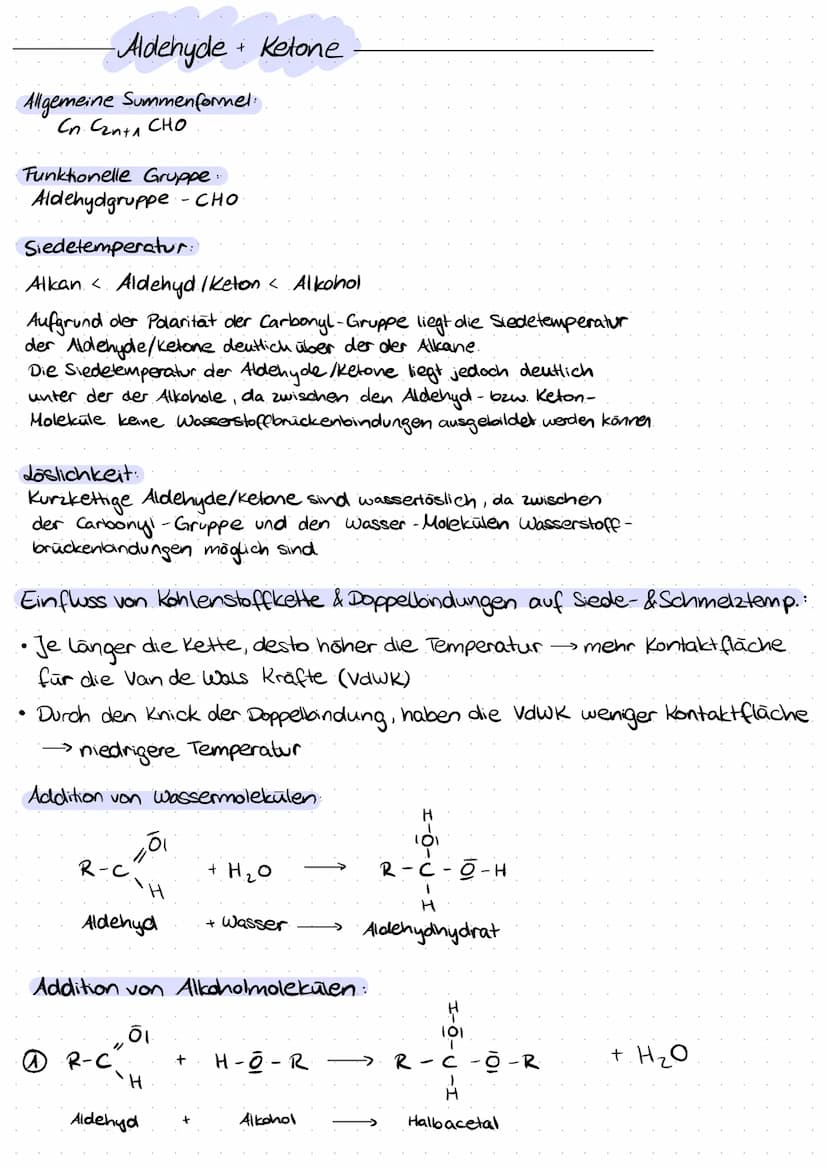 Aldehyde + Ketone
Allgemeine Summenformel:
Cn C2n+1 CHO
Funktionelle Gruppe:
Aldehydgruppe - CHO
Siedetemperatur:
Alkan < Aldehyd/Keton < Alkohol
Aufgrund der Polarität der Carbonyl-Gruppe liegt die Siedetemperatur
der Aldehyde/Ketone deutlich über der der Alkane.
Die Siedetemperatur der Aldehyde/Ketone liegt jedoch deutlich
unter der der Alkohole, da zwischen den Aldehyd- bzw. Keton-
Moleküle keine Wasserstoffbrückenbindungen ausgebildet werden können
Löslichkeit:
Kurzkettige Aldehyde/Ketone sind wasserlöslich, da zwischen
der Carbonyl-Gruppe und den Wasser-Molekülen Wasserstoff-
brückenbindungen möglich sind
Einfluss von Kohlenstoffkette & Doppelbindungen auf Siede- & Schmelztemp.:
• Je länger die Kette, desto höher die Temperatur → mehr Kontaktfläche
für die Van de Wals Kräfte (VdWK)
• Durch den Knick der Doppelbindung, haben die VdWK weniger Kontaktfläche
→ niedrigere Temperatur
Addition von Wassermolekülen:
H
O
|O|
R-C + H2O → R-C-O-H
H
H
Aldehyd + Wasser → Aldehydhydrat
Addition von Alkoholmolekülen:
H
O
|O|
① R-C + H-O-R → R-C-O-R + H2O
H
H
Aldehyd + Alkohol → Halbacetal